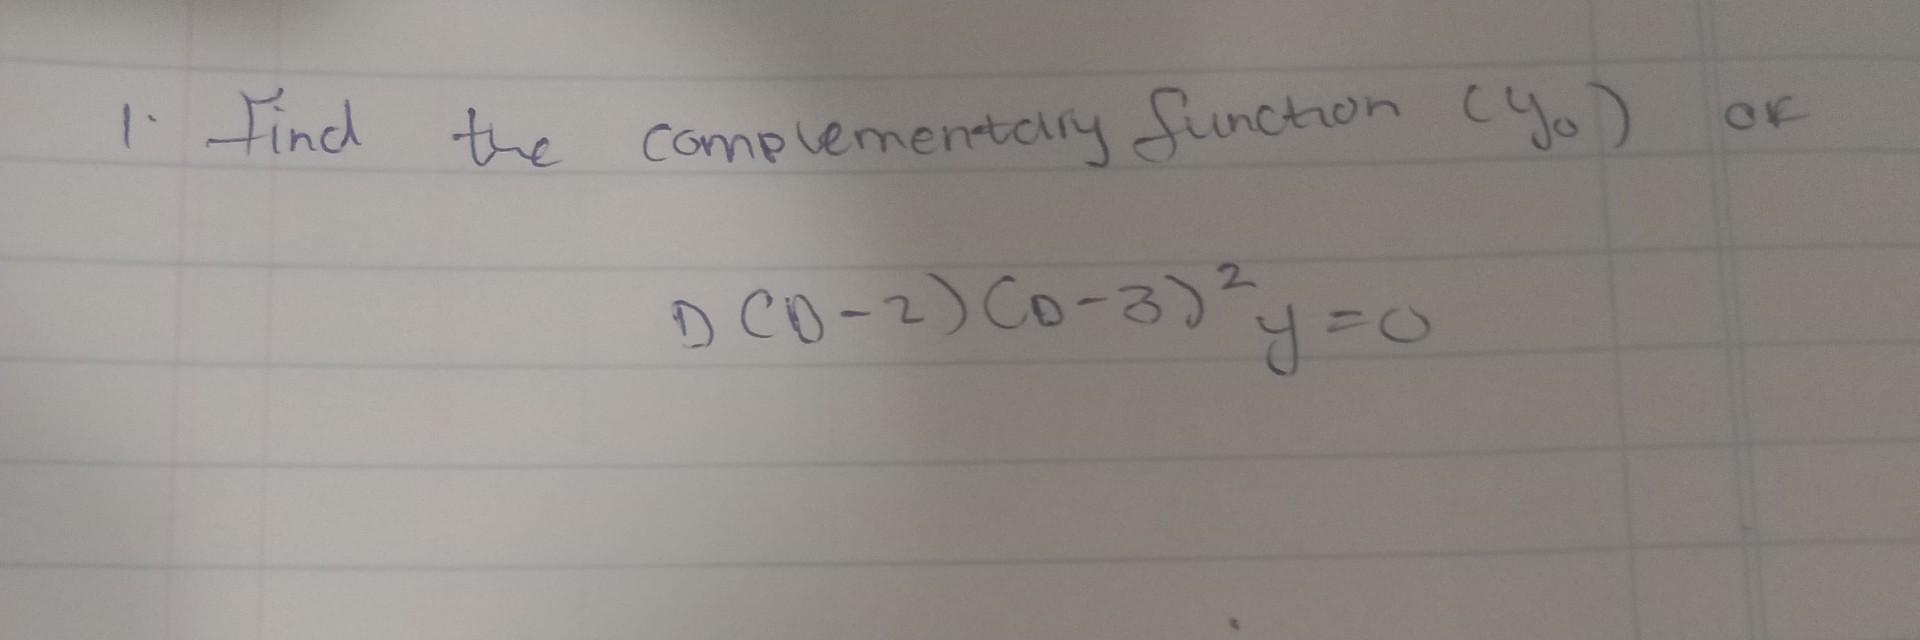 1. Find the complementary function (y₀) of
D(D-2)(D-3)² y = 0